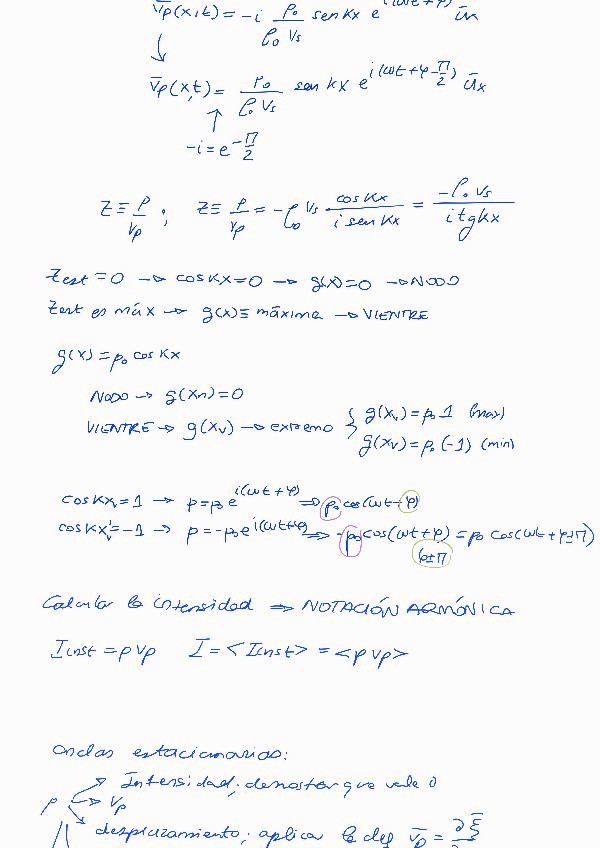 v̄p(x,t) = -i p₀/(ρ₀ Vs) sen kx e^{i(ωt+φ)} ūx
↓
v̄p(x,t) = p₀/(ρ₀ Vs) sen kx e^{i(ωt+φ-π/2)} ūx
↑
-i = e^{-π/2}
Z ≡ p/vp ; Z ≡ p/vp = -ρ₀ Vs cos kx/(i sen kx) = -ρ₀ Vs/(i tg kx)
Zest = 0 → cos kx = 0 → g(x) = 0 → NODO
Zest es máx → g(x) ≡ máxima → VIENTRE
g(x) = p₀ cos kx
NODO → g(xn) = 0
VIENTRE → g(xv) → extremo { g(xv) = p₀ 1 (max)
g(xv) = p₀ (-1) (min)
cos kxv = 1 → p = p₀ e^{i(ωt+φ)} ⇒ p₀ cos(ωt+φ)
cos kx'v = -1 → p = -p₀ e^{i(ωt+φ)} ⇒ -p₀ cos(ωt+φ) = p₀ cos(ωt+φ±π)
φ±π
Calcular la intensidad ⇒ NOTACIÓN ARMÓNICA
Iinst = p vp I = <Iinst> = <p vp>
Ondas estacionarias:
Intensidad; demostar que vale 0
p → vp
desplazamiento; aplicar la def v̄p = ∂ξ̄